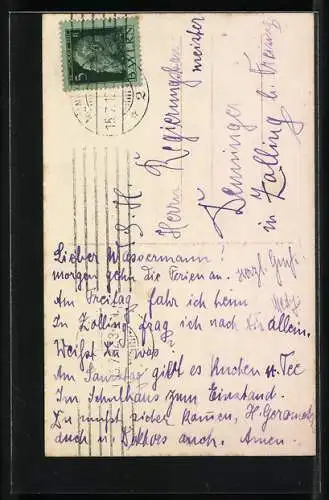 5
BAYERN
15.7.1
2
S. H.
Herrn Regierungsbaumeister
Deininger
in Zolling b. Freising
Lieber Wassermann!
morgen gehn die Ferien an.
Am Freitag fahr ich heim
In Zolling frag ich nach Dir allein.
Weißt Du was?
Am Samstag gibt es Kuchen u. Tee
Im Schulhaus zum Einstand.
Du mußt sicher kommen, H.
auch u. Doktors auch. Amen.
herzl. Gruß